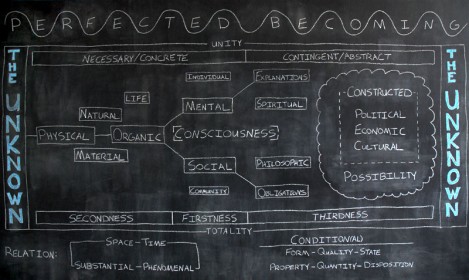 PERFECTED BECOMING
UNITY
NECESSARY/CONCRETE
CONTINGENT/ABSTRACT
THE UNKNOWN
INDIVIDUAL
EXPLANATIONS
LIFE
MENTAL
SPIRITUAL
NATURAL
PHYSICAL
ORGANIC
[CONSCIOUSNESS]
MATERIAL
SOCIAL
PHILOSOPHIC
COMMUNITY
OBLIGATIONS
CONSTRUCTED
POLITICAL
ECONOMIC
CULTURAL
POSSIBILITY
THE UNKNOWN
SECONDNESS
FIRSTNESS
THIRDNESS
TOTALITY
RELATION:
SPACE-TIME
SUBSTANTIAL-PHENOMENAL
CONDITION(AL)
FORM-QUALITY-STATE
PROPERTY-QUANTITY-DISPOSITION